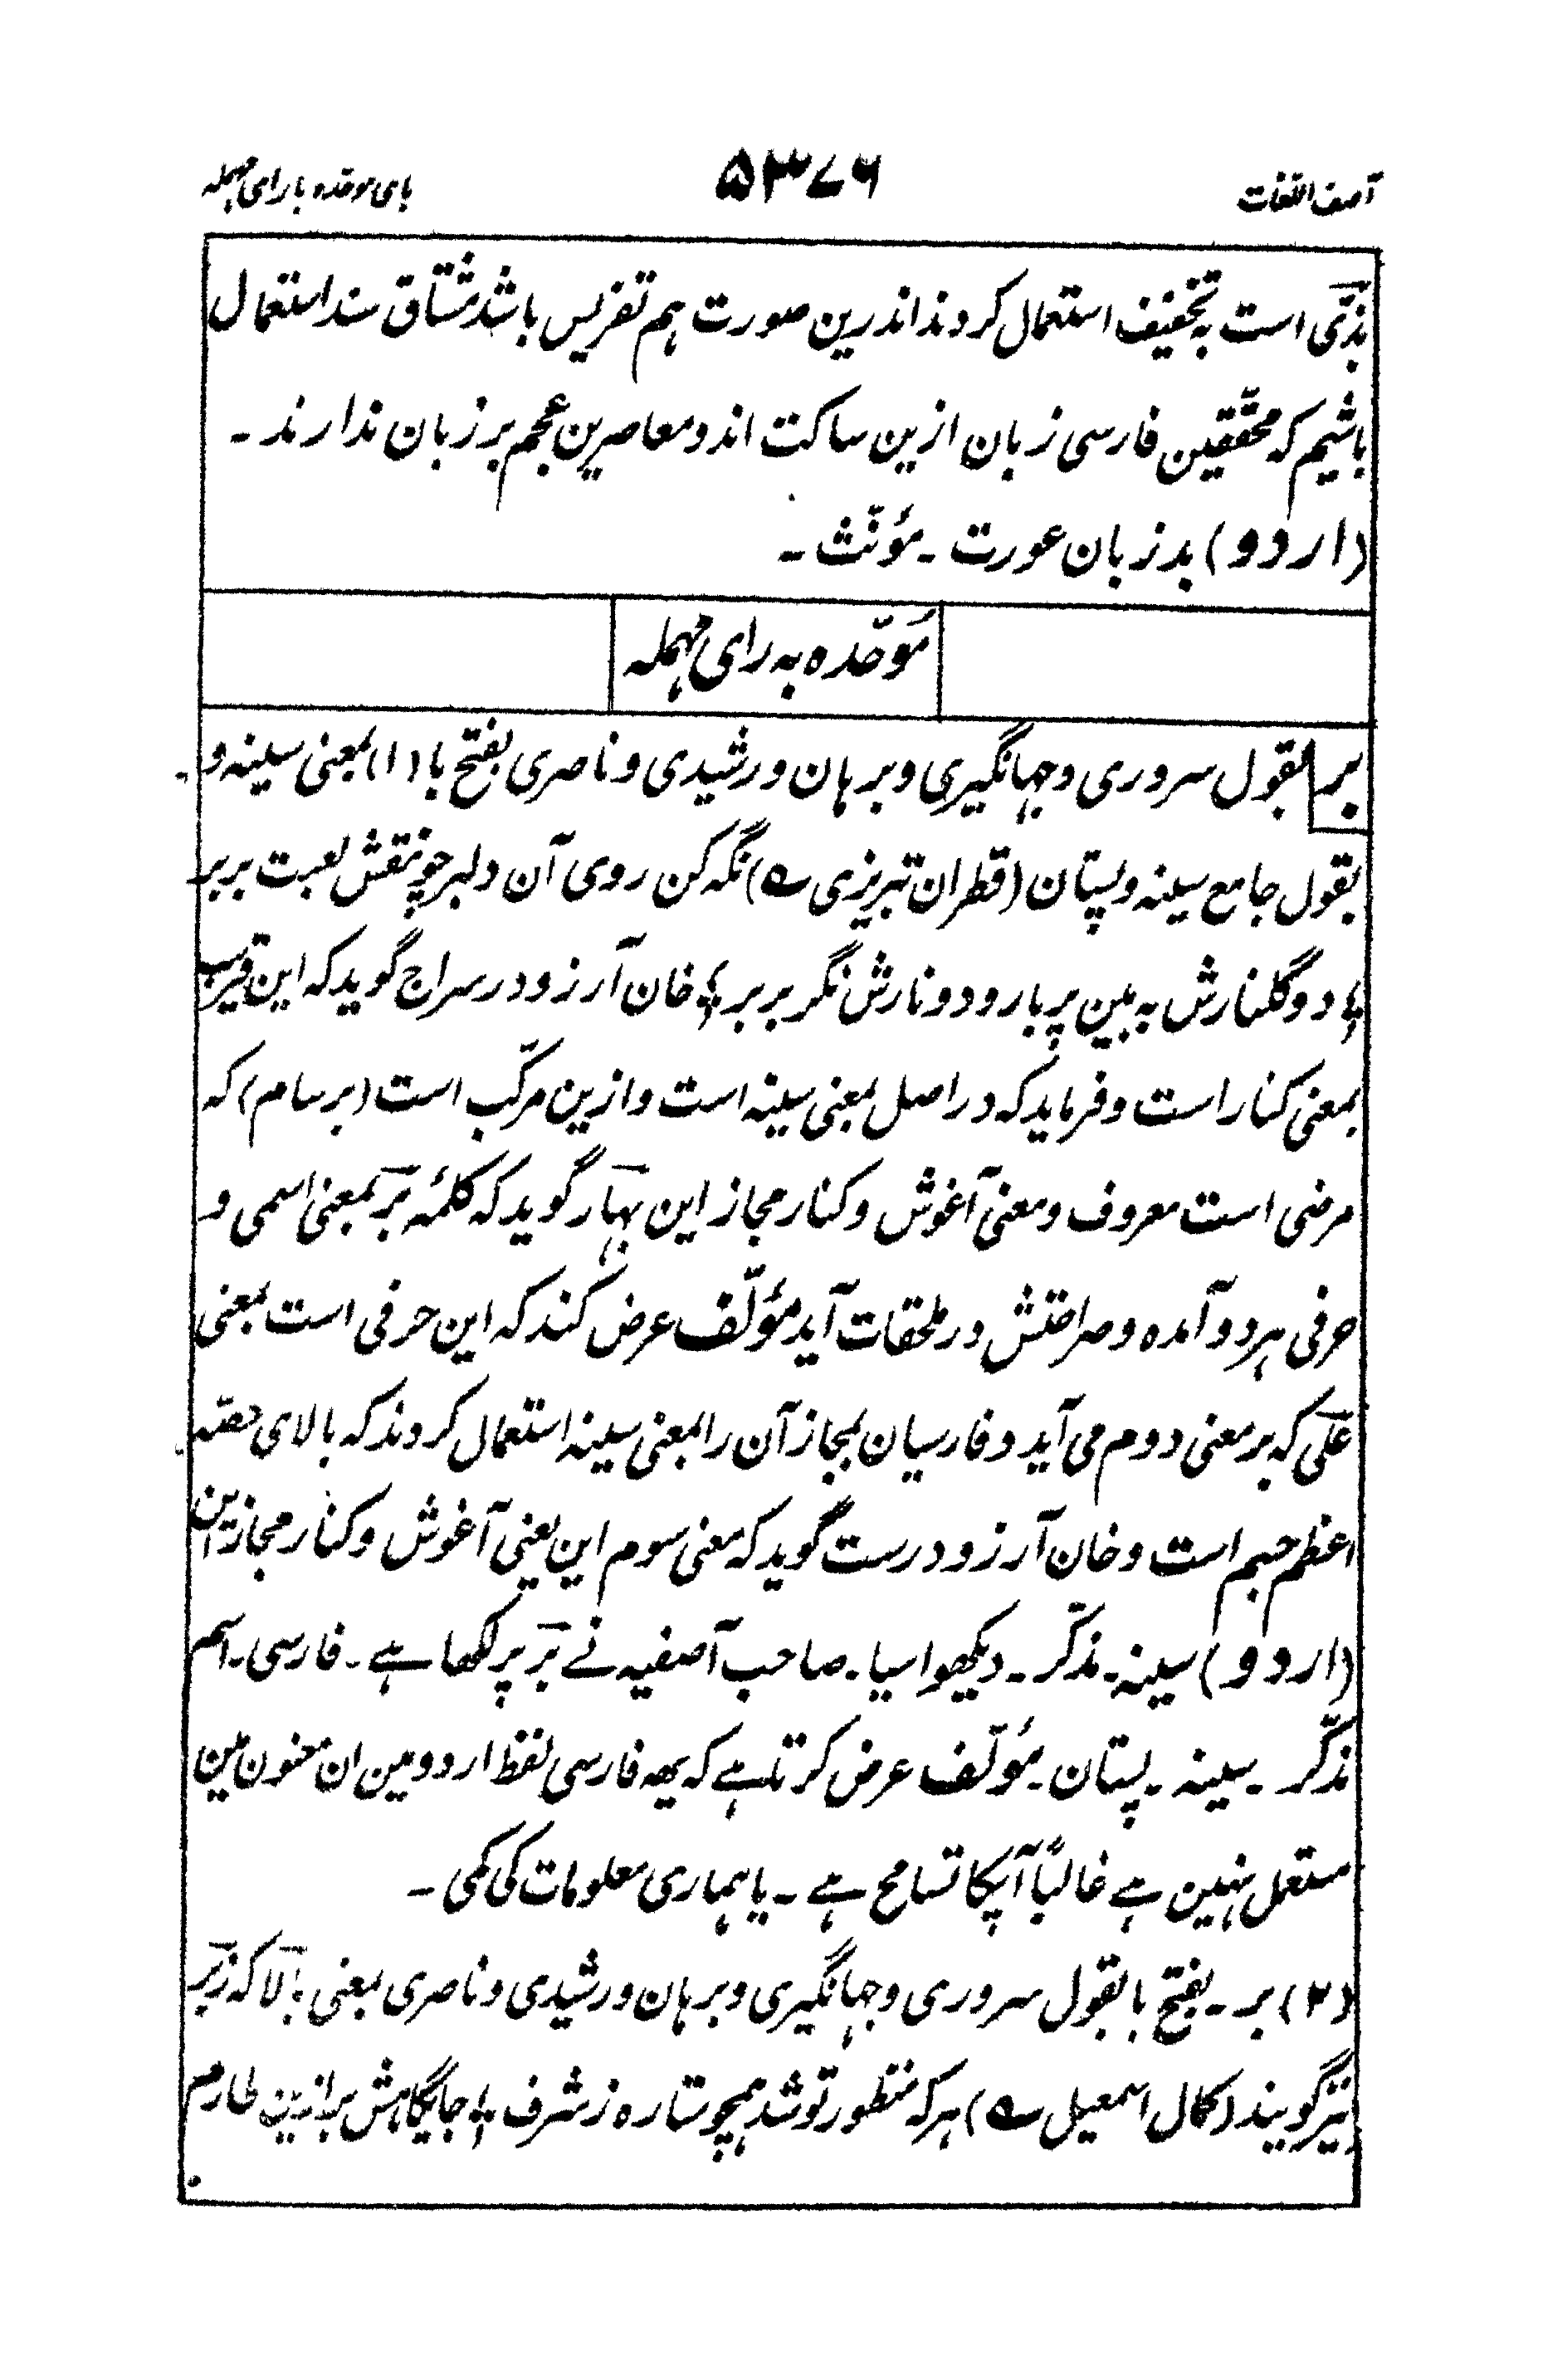 آصف اللغات ۵۳۷۶ بای موحده با رای مهمله
بذیّ است به تخفیف استعمال کردند اندرین صورت هم تفریس باشد مشتاق سند استعمال
باشیم که محقّقین فارسی زبان ازین ساکت اند و معاصرین عجم بر زبان ندارند ۔
(اردو) بد زبان عورت ۔ مؤنّث ۔
مُوحّده به رای مهمله
بر بقول سروری و جهانگیری و برهان و رشیدی و ناصری بفتح با (۱) بمعنی سینه و
بقول جامع سینه و پستان (قطران تبریزی ؎) نگه کن روی آن دلبر چو نقش لعبت بربر
؛ دو گلنارش به بین پربار و دو نارش نگر بر بر ؛ خان آرزو در سراج گوید که این قریب
بمعنی کنار است و فرماید که در اصل بمعنی سینه است و ازین مرکّب است (برسام) که
مرضی است معروف و معنی آغوش و کنار مجاز این بهار گوید که کلمهٔ بر بمعنی اسمی و
حرفی هر دو آمده و صراحتش در ملحقات آید مؤلّف عرض کند که این حرفی است بمعنی
علیٰ که بر معنی دوم می آید و فارسیان بمجاز آن را بمعنی سینه استعمال کردند که بالای حصّهٔ
اعظم جسم است و خان آرزو درست گوید که معنی سوم این یعنی آغوش و کنار مجاز این
(اردو) سینہ۔ مذکّر ۔ دیکھو اسیا ۔ صاحب آصفیہ نے بر پر لکھا ہے ۔ فارسی ۔ اسم
مذکّر ۔ سینہ ۔ پستان ۔ مؤلّف عرض کرتا ہے کہ یہہ فارسی لفظ اردو مین ان معنون مین
مستعمل نہین ہے غالباً آپکا تسامح ہے ۔ یا ہماری معلومات کی کمی ۔
(۲) بر ۔ بفتح با بقول سروری و جهانگیری و برهان و رشیدی و ناصری بمعنی بالا که زبر
نیز گویند (کمال اسمعیل ؎) هر که منظور تو شد همچو ستاره ز شرف ؛ جایگاهش بر ازین طارم